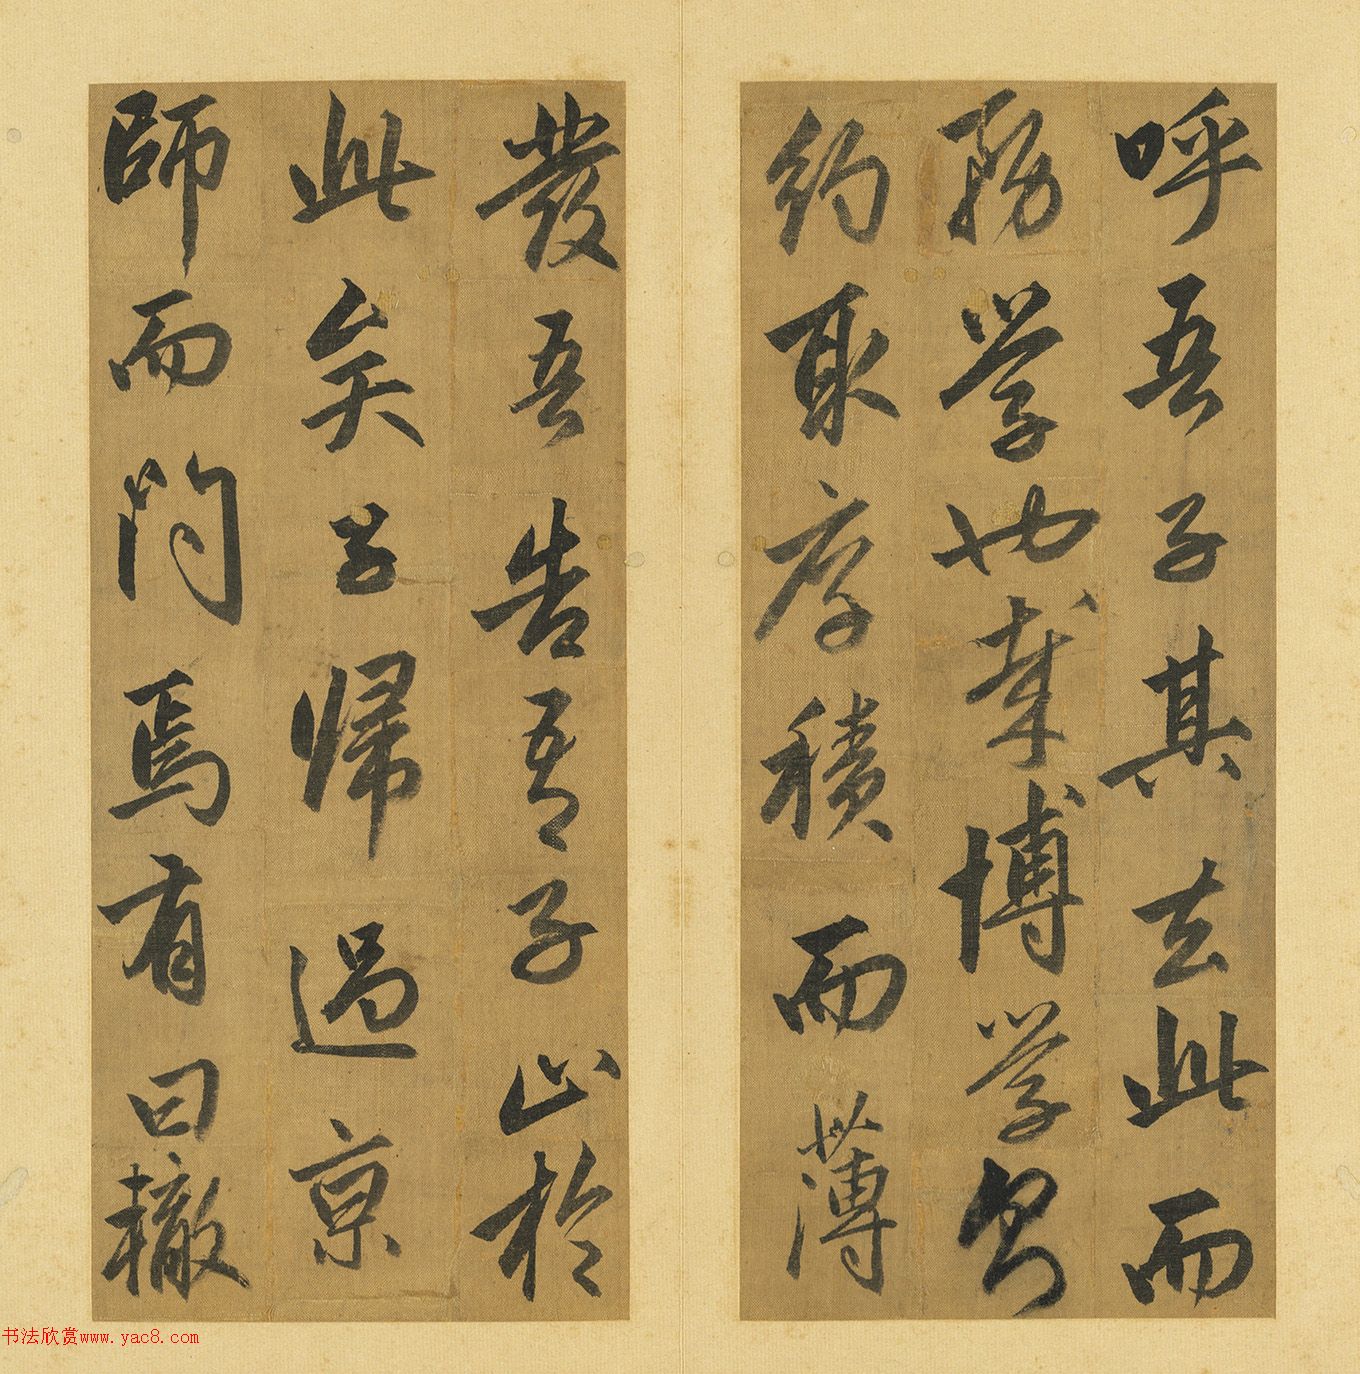 呼吾子其去此而
務学也哉博学而
約取厚積而薄
發吾告吾子止於
此矣子歸過京
師而問焉有曰轍
书法欣赏www.yac8.com